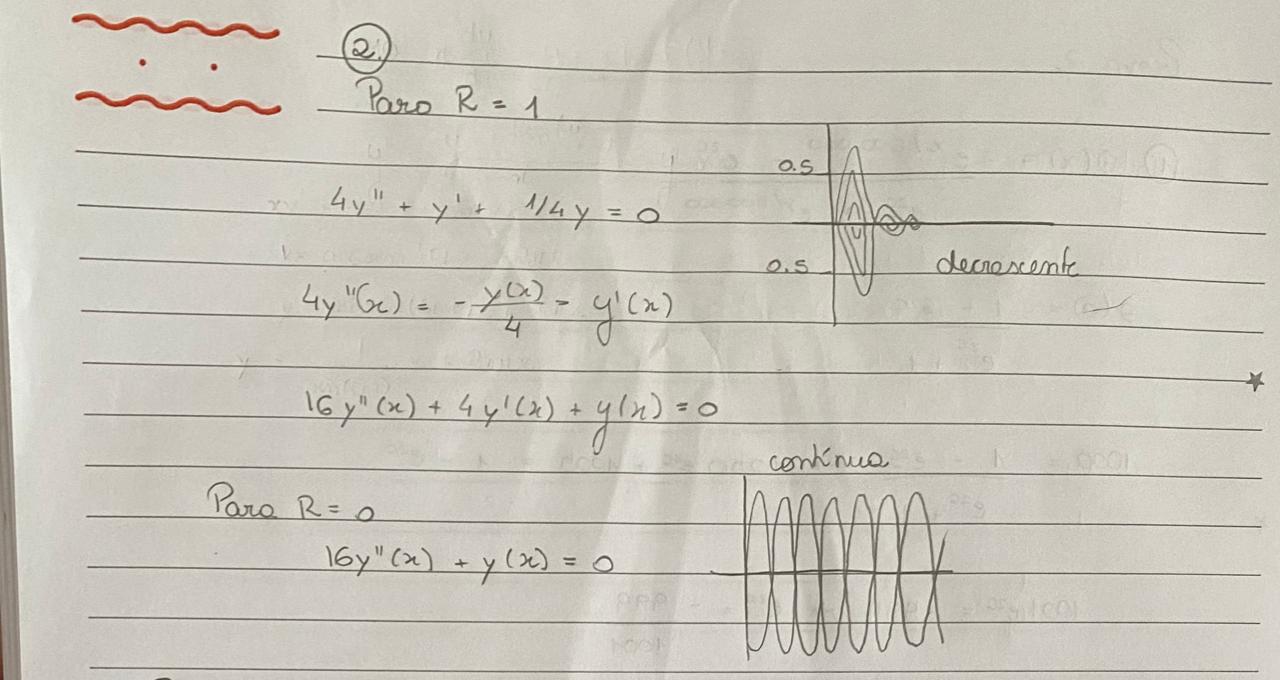 2.
Para R = 1
0.5
4y" + y' + 1/4y = 0
0.5 decrescente
4y"(x) = - y(x)/4 - y'(x)
16y"(x) + 4y'(x) + y(x) = 0
contínua
Para R = 0
16y"(x) + y(x) = 0